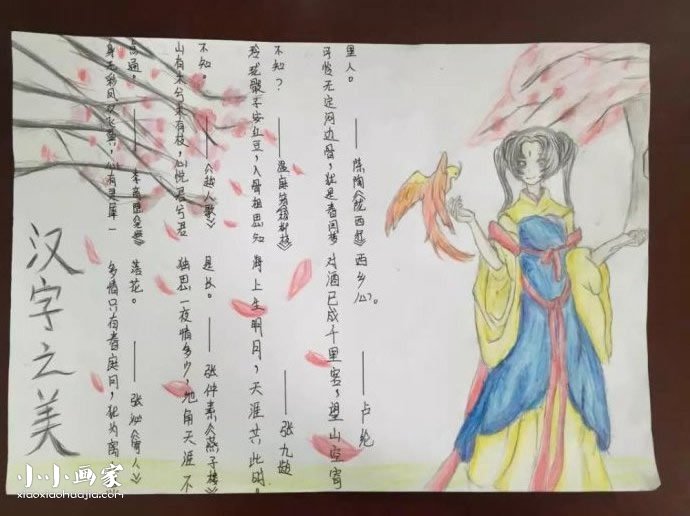 汉字之美
身无彩凤双飞翼，心有灵犀一
点通。——李商隐《无题》
山有木兮木有枝，心悦君兮君
不知。——《越人歌》
玲珑骰子安红豆，入骨相思知
不知？——温庭筠《杨柳枝》
可怜无定河边骨，犹是春闺梦
里人。——陈陶《陇西行》
多情只有春庭月，犹为离
落花。——张泌《寄人》
独思一夜情多少，地角天涯不
是长。——张仲素《燕子楼》
海上生明月，天涯共此时。
——张九龄
对酒已成千里客，望山空寄
西乡心。——卢纶
小小画家
xiaoxiaohuajia.com